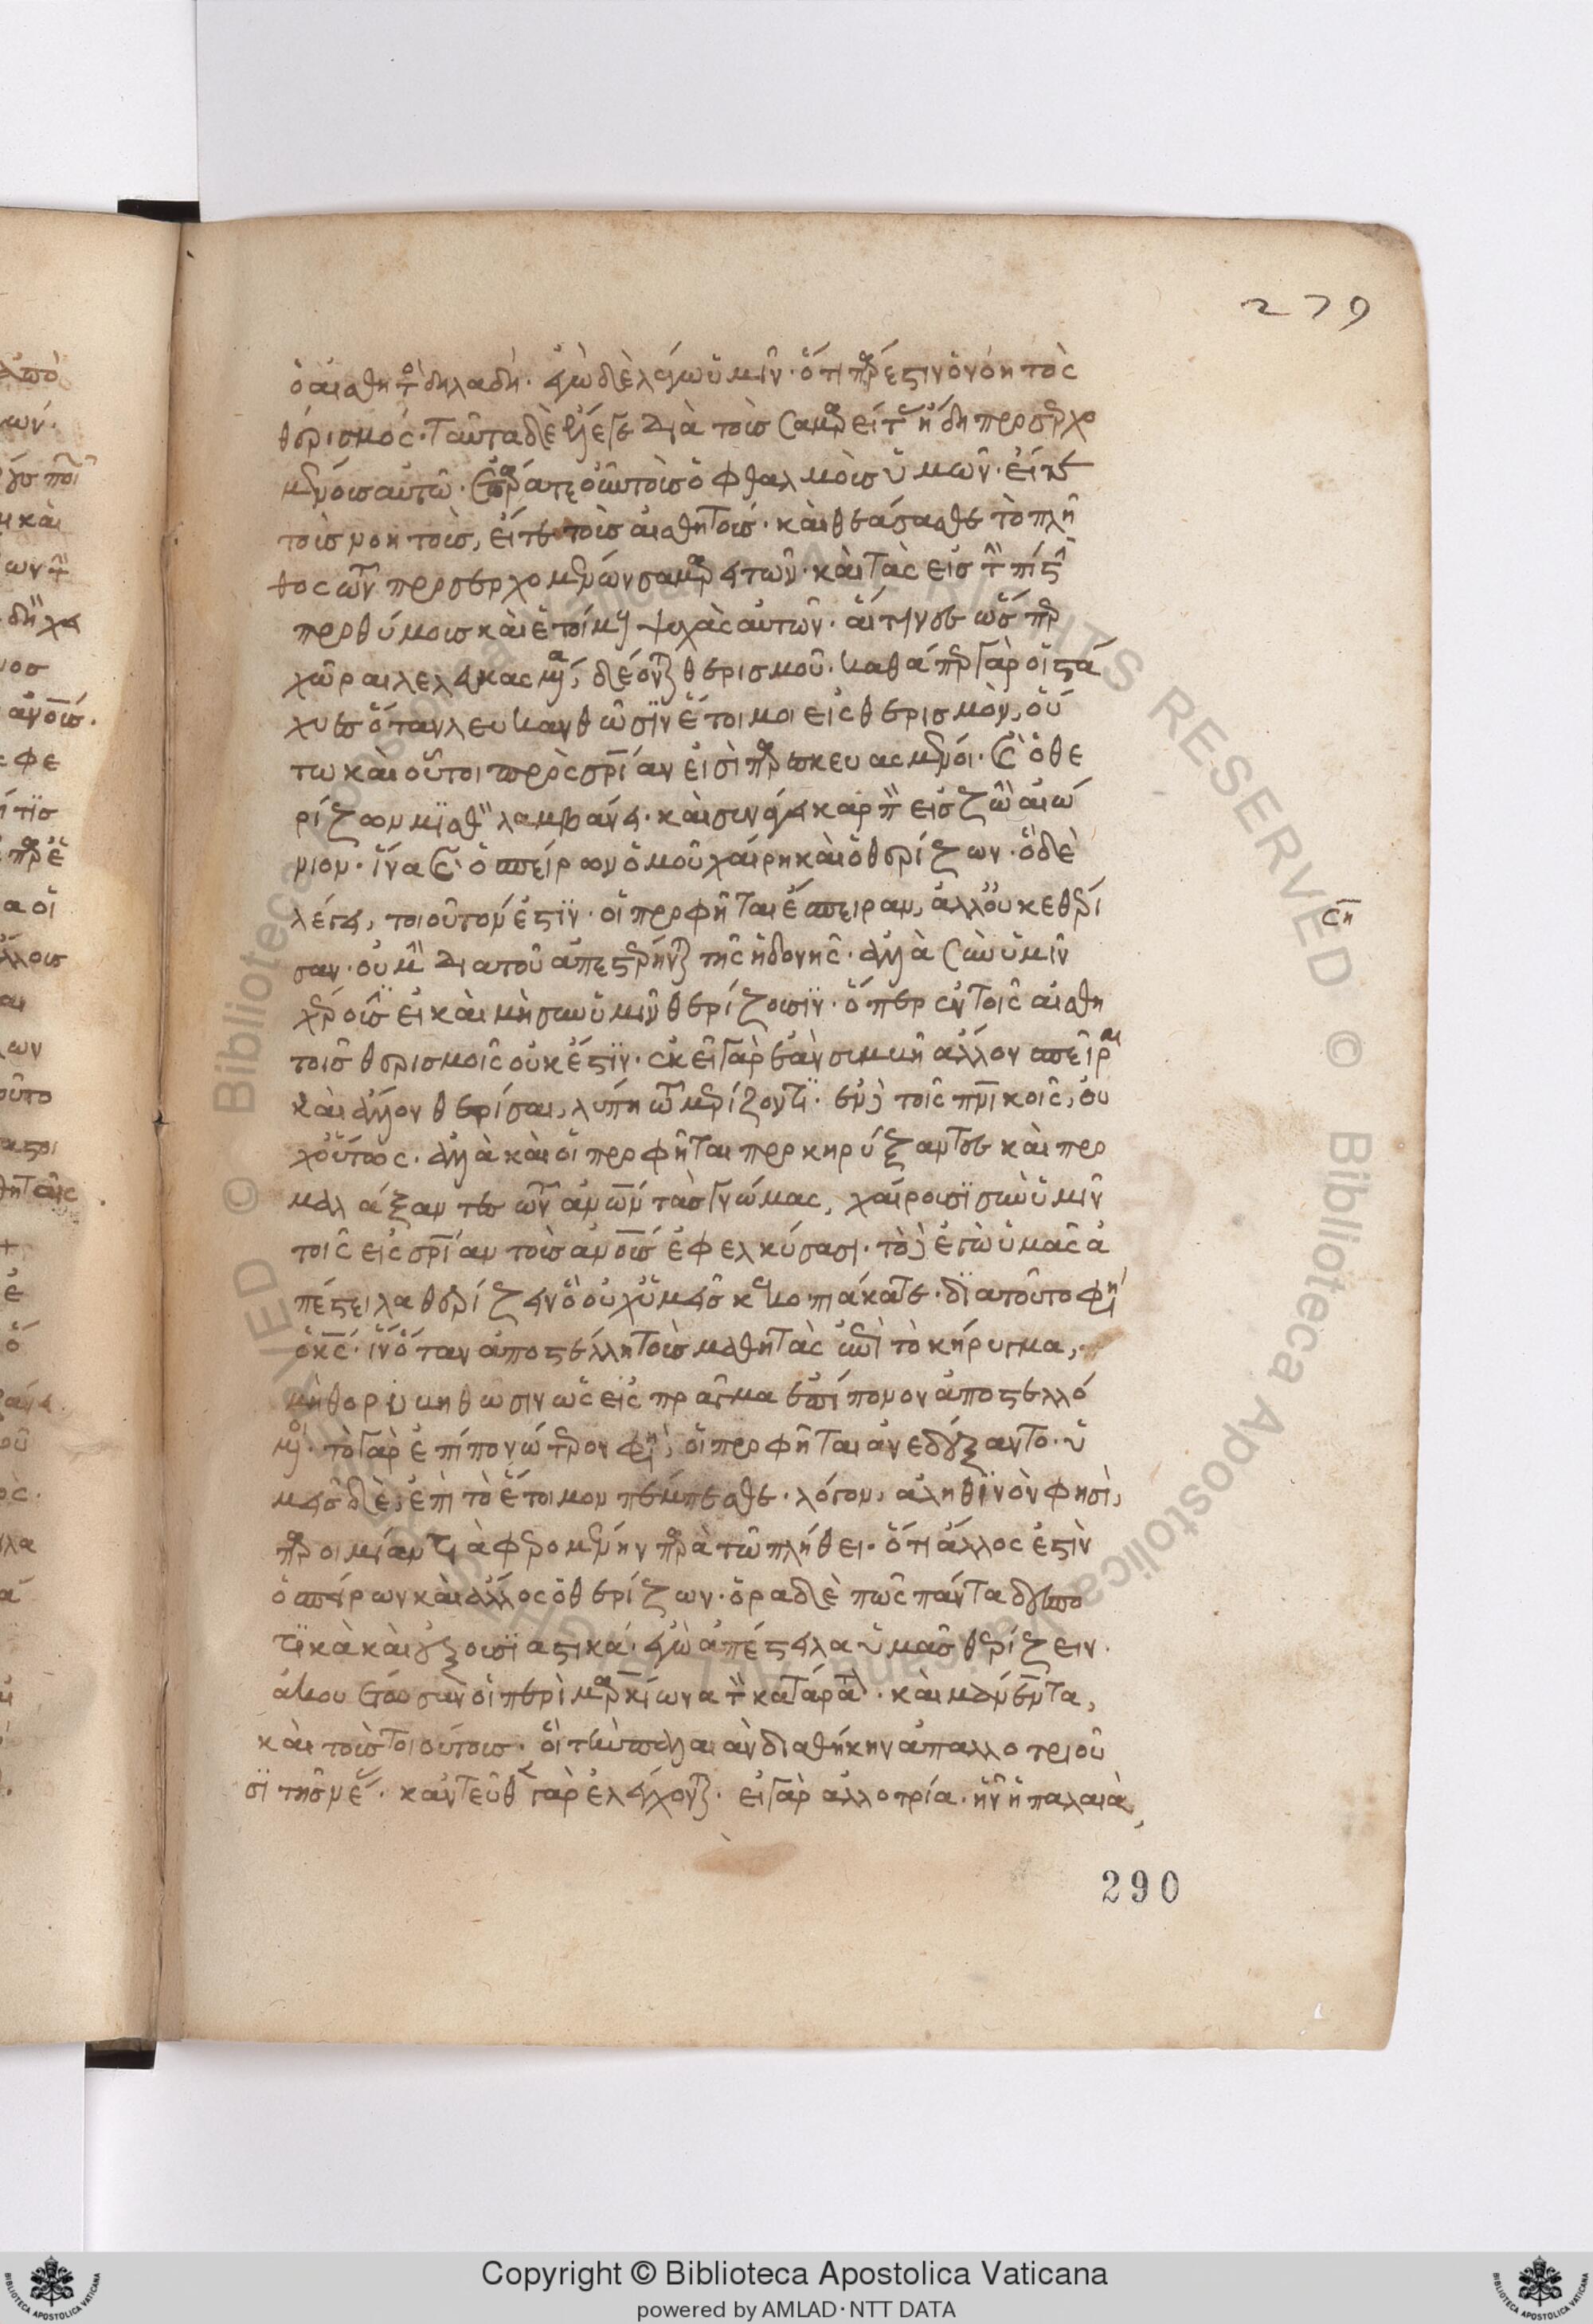 279
ὁ αἰσθητὸς δηλαδή· ἐγὼ δὲ λέγω ὑμῖν· ὅτι πάρεστιν ὁ νοητὸς
θερισμός· ταῦτα δὲ ἔλεγε διὰ τοὺς σαμαρείτας ἤδη προσερχο
μένους αὐτῷ· ἐπάρατε οὖν τοὺς ὀφθαλμοὺς ὑμῶν· εἴτε
τοὺς νοητοὺς, εἴτε τοὺς αἰσθητούς· καὶ θεάσασθε τὸ πλῆ
θος τῶν προσερχομένων σαμαρειτῶν· καὶ τὰς εἰς τὴν πίστιν
προθύμους καὶ ἑτοίμας ψυχὰς αὐτῶν· αἵτινες ὥσπερ
χῶραι λελευκασμέναι, δέονται θερισμοῦ· καθάπερ γὰρ οἱ στά
χυες ὅταν λευκανθῶσιν ἕτοιμοι εἰς θερισμὸν, οὕ
τω καὶ οὗτοι πρὸς σρίαν εἰσὶ παρεσκευασμένοι· καὶ ὁ θε
ρίζων μισθὸν λαμβάνει· καὶ συνάγει καρπὸν εἰς ζωὴν αἰώ
νιον· ἵνα καὶ ὁ σπείρων ὁμοῦ χαίρη καὶ ὁ θερίζων· ὃ δὲ
λέγει, τοιοῦτον ἐστὶν· οἱ προφῆται ἔσπειραν, ἀλλ' οὐκ ἐθέρι
σαν· οὐ μὴν διὰ τοῦτο ἀπεστέρηνται τῆς ἡδονῆς· ἀλλὰ σὺν ὑμῖν
χαίρουσιν εἰ καὶ μὴ σὺν ὑμῖν θερίζουσιν· ὅπερ ἐν τοῖς αἰσθη
τοῖς θερισμοῖς οὐκ ἔστιν· ἐκεῖ γὰρ ἐὰν συμβῆ ἄλλον σπεῖραι
καὶ ἄλλον θερίσαι, λύπη τῶ μὴ θερίζοντι· ἐν δὲ τοῖς πνικοῖς, οὐ
χ οὕτως· ἀλλὰ καὶ οἱ προφῆται προκηρύξαντες καὶ προ
μαλάξαντες τῶν ἀνων τὰς γνώμας, χαίρουσι σὺν ὑμῖν
τοῖς εἰς σρίαν τοὺς ἀνους ἐφελκύσασι· τὸ δὲ ἐγὼ ὑμᾶς ἀ
πέστειλα θερίζειν ὃ οὐχ ὑμεῖς κεκοπιάκατε· διὰ τοῦτο φησὶ
ὁ κς· ἵν' ὅταν ἀποστέλλη τοὺς μαθητὰς ἐπὶ τὸ κήρυγμα,
μὴ θορυβηθῶσιν ὡς εἰς πρᾶγμα ἐπίπονον ἀποστελλό
μενοι· τὸ γὰρ ἐπιπονώτερον φησὶ, οἱ προφῆται ἀνεδέξαντο· ὑ
μεῖς δὲ, ἐπὶ τὸ ἕτοιμον πέμπεσθε· λόγον, ἀληθινὸν φησὶ,
παροιμίαν τινὰ φερομένην παρὰ τῶ πλήθει· ὅτι ἄλλος ἐστὶν
ὁ σπείρων καὶ ἄλλος ὁ θερίζων· ὅρα δὲ πῶς πάντα δεσπο
τικὰ καὶ ἐξουσιαστικά· ἐγὼ ἀπέστειλα ὑμᾶς θερίζειν·
ἀκουέτωσαν οἱ περὶ μαρκίωνα τὸν κατάρατον· καὶ μανέντα,
καὶ τοὺς τοιούτους· οἳ τὴν παλαιὰν διαθήκην ἀπαλλοτριοῦ
σι τῆς νέας· κἀντεῦθεν γὰρ ἐλέγχονται· εἰ γὰρ ἀλλοτρία ἦν ἡ παλαιὰ,
ση
290
Copyright © Biblioteca Apostolica Vaticana
powered by AMLAD·NTT DATA